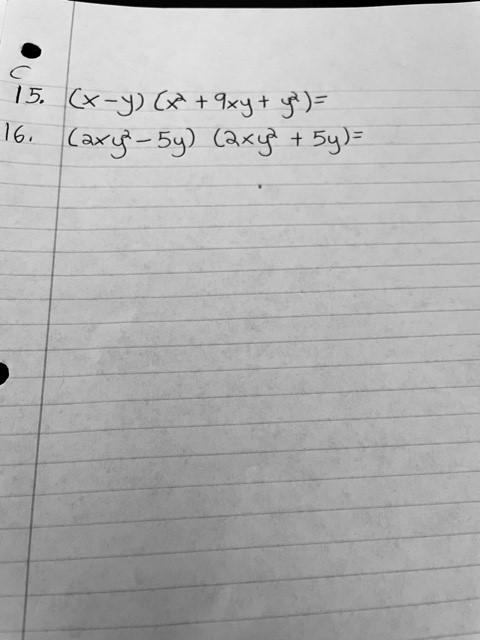 C
15. (x-y) (x² + 9xy + y²)=
16. (2xy² - 5y) (2xy² + 5y)=